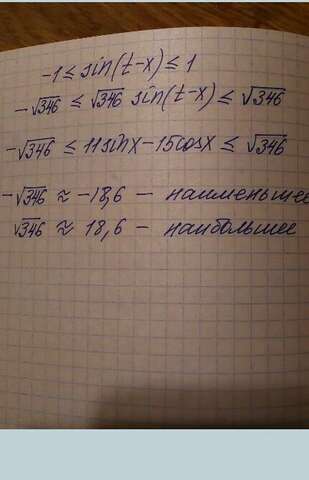 -1 ≤ sin(t-x) ≤ 1
-√346 ≤ √346 sin(t-x) ≤ √346
-√346 ≤ 11sinx - 15cosx ≤ √346
-√346 ≈ -18,6 — наименьшее
√346 ≈ 18,6 — наибольшее